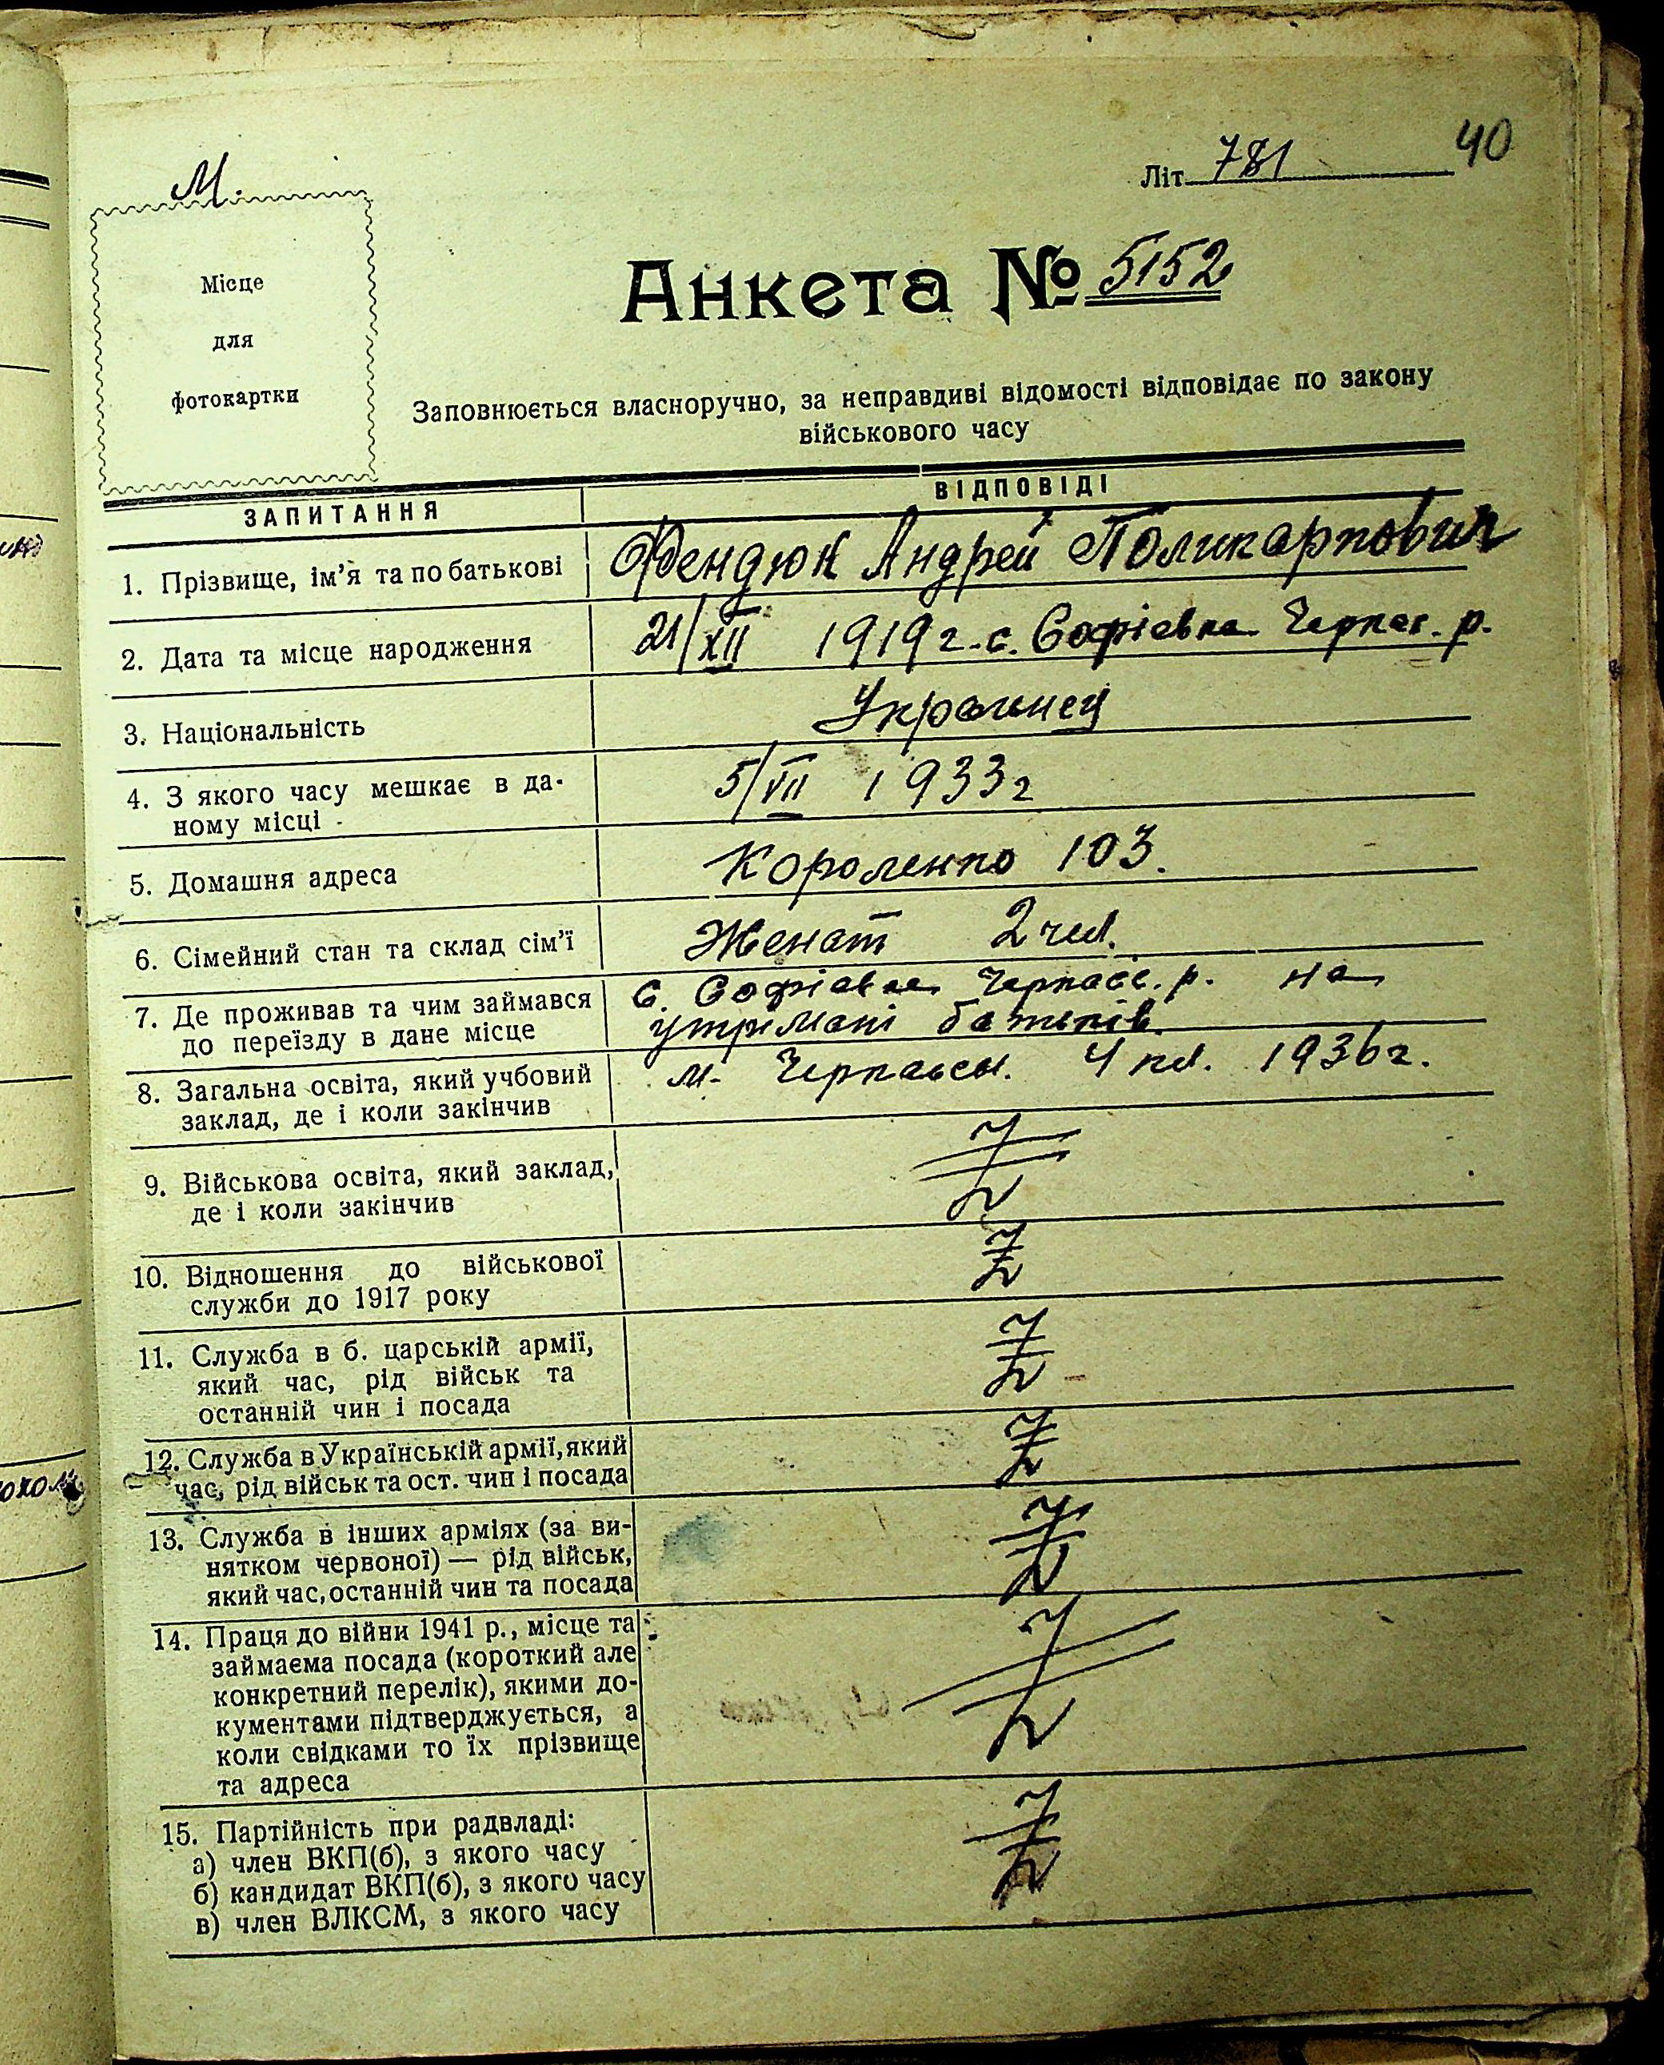 М.
Літ. 781 40
Місце
для
фотокартки
Анкета № 5152
Заповнюється власноручно, за неправдиві відомості відповідає по закону
військового часу
ЗАПИТАННЯ ВІДПОВІДІ
1. Прізвище, ім'я та по батькові Фендюк Андрей Поликарпович
2. Дата та місце народження 21/XII 1919 г. с. Софієвка Черкас. р.
3. Національність Украинец
4. З якого часу мешкає в да- 5/VII 1933 г
ному місці
5. Домашня адреса Короленко 103.
6. Сімейний стан та склад сім'ї Женат 2 чел.
7. Де проживав та чим займався с. Софієвка Черкасс. р. на
до переїзду в дане місце утримані батьків.
8. Загальна освіта, який учбовий м. Черкассы. 4 кл. 1936 г.
заклад, де і коли закінчив
9. Військова освіта, який заклад,
де і коли закінчив
10. Відношення до військової
служби до 1917 року
11. Служба в б. царській армії,
який час, рід військ та
останній чин і посада
12. Служба в Українській армії, який
час, рід військ та ост. чин і посада
13. Служба в інших арміях (за ви-
нятком червоної) — рід військ,
який час, останній чин та посада
14. Праця до війни 1941 р., місце та
займаєма посада (короткий але
конкретний перелік), якими до-
кументами підтверджується, а
коли свідками то їх прізвище
та адреса
15. Партійність при радвладі:
а) член ВКП(б), з якого часу
б) кандидат ВКП(б), з якого часу
в) член ВЛКСМ, з якого часу